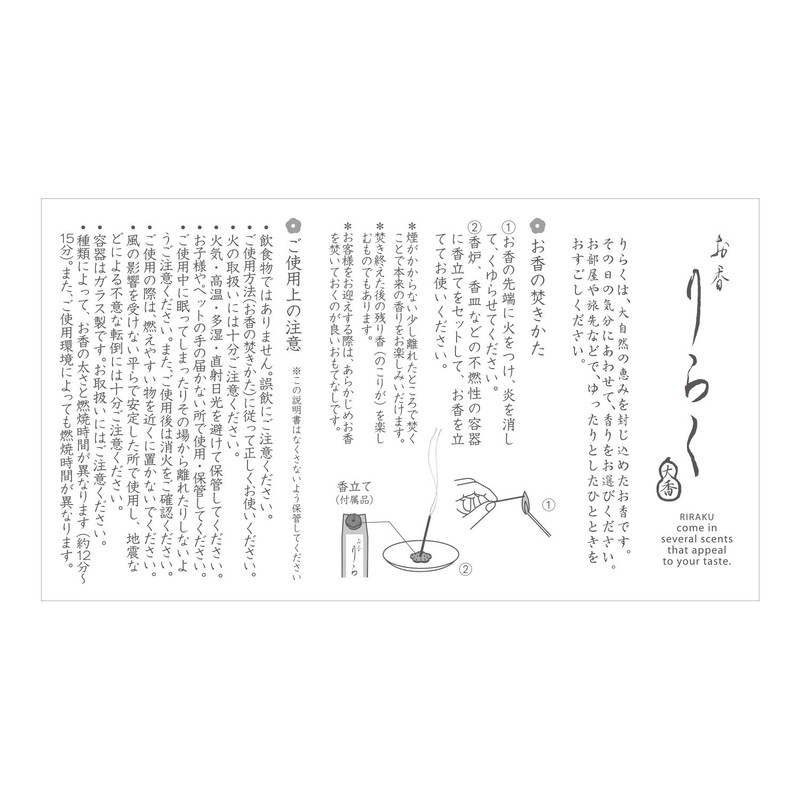 お香
りらく
大香
RIRAKU
come in
several scents
that appeal
to your taste.
りらくは、大自然の恵みを封じ込めたお香です。
その日の気分にあわせて、香りをお選びください。
お部屋や旅先などで、ゆったりとしたひとときを
おすごしください。
お香の焚きかた
①お香の先端に火をつけ、炎を消し
て、くゆらせてください。
②香炉、香皿などの不燃性の容器
に香立てをセットして、お香を立
ててお使いください。
＊煙がかからない少し離れたところで焚く
ことで本来の香りをお楽しみいただけます。
＊焚き終えた後の残り香（のこりが）を楽し
むものでもあります。
＊お客様をお迎えする際は、あらかじめお香
を焚いておくのが良いおもてなしです。
①
香立て
(付属品)
お香
りらく
②
ご使用上の注意 ※この説明書はなくさないよう保管してください
・飲食物ではありません。誤飲にご注意ください。
・ご使用方法(お香の焚きかた)に従って正しくお使いください。
・火の取扱いには十分ご注意ください。
・火気・高温・多湿・直射日光を避けて保管してください。
・お子様やペットの手の届かない所で使用・保管してください。
・ご使用中に眠ってしまったりその場から離れたりしないよ
うご注意ください。また、ご使用後は消火をご確認ください。
・ご使用の際は、燃えやすい物を近くに置かないでください。
・風の影響を受けない平らで安定した所で使用し、地震な
どによる不意な転倒には十分ご注意ください。
・容器はガラス製です。お取扱いにはご注意ください。
・種類によって、お香の太さと燃焼時間が異なります(約12分〜
15分)。また、ご使用環境によっても燃焼時間が異なります。